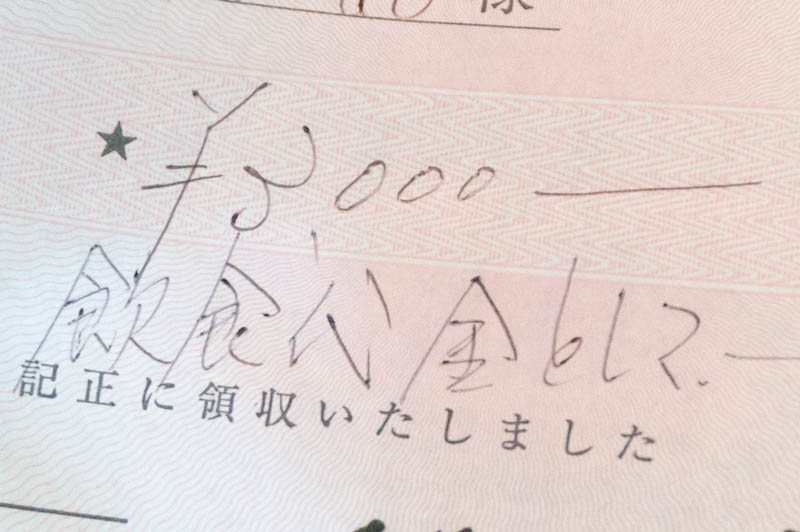 様
★ ¥5000―
飲食代金として.―
記正に領収いたしました